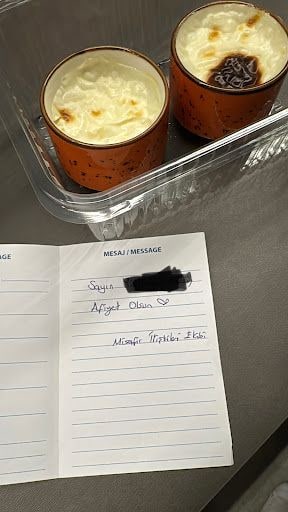 AGE
MESAJ / MESSAGE
Sayın
Afiyet Olsun ♡
Misafir İlişkileri Ekibi